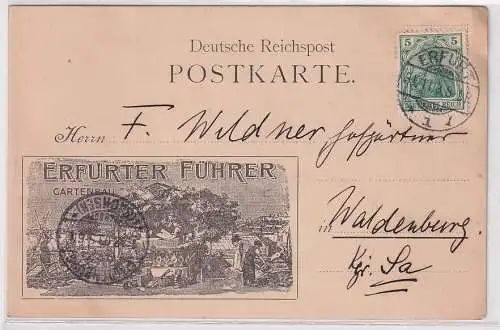 Deutsche Reichspost
POSTKARTE.
5 5
ERFURT
REICH
1
Herrn F. Wildner Hofgärtner
ERFURTER FÜHRER
GARTENBAU
in Waldenburg.
Kgr. Sa